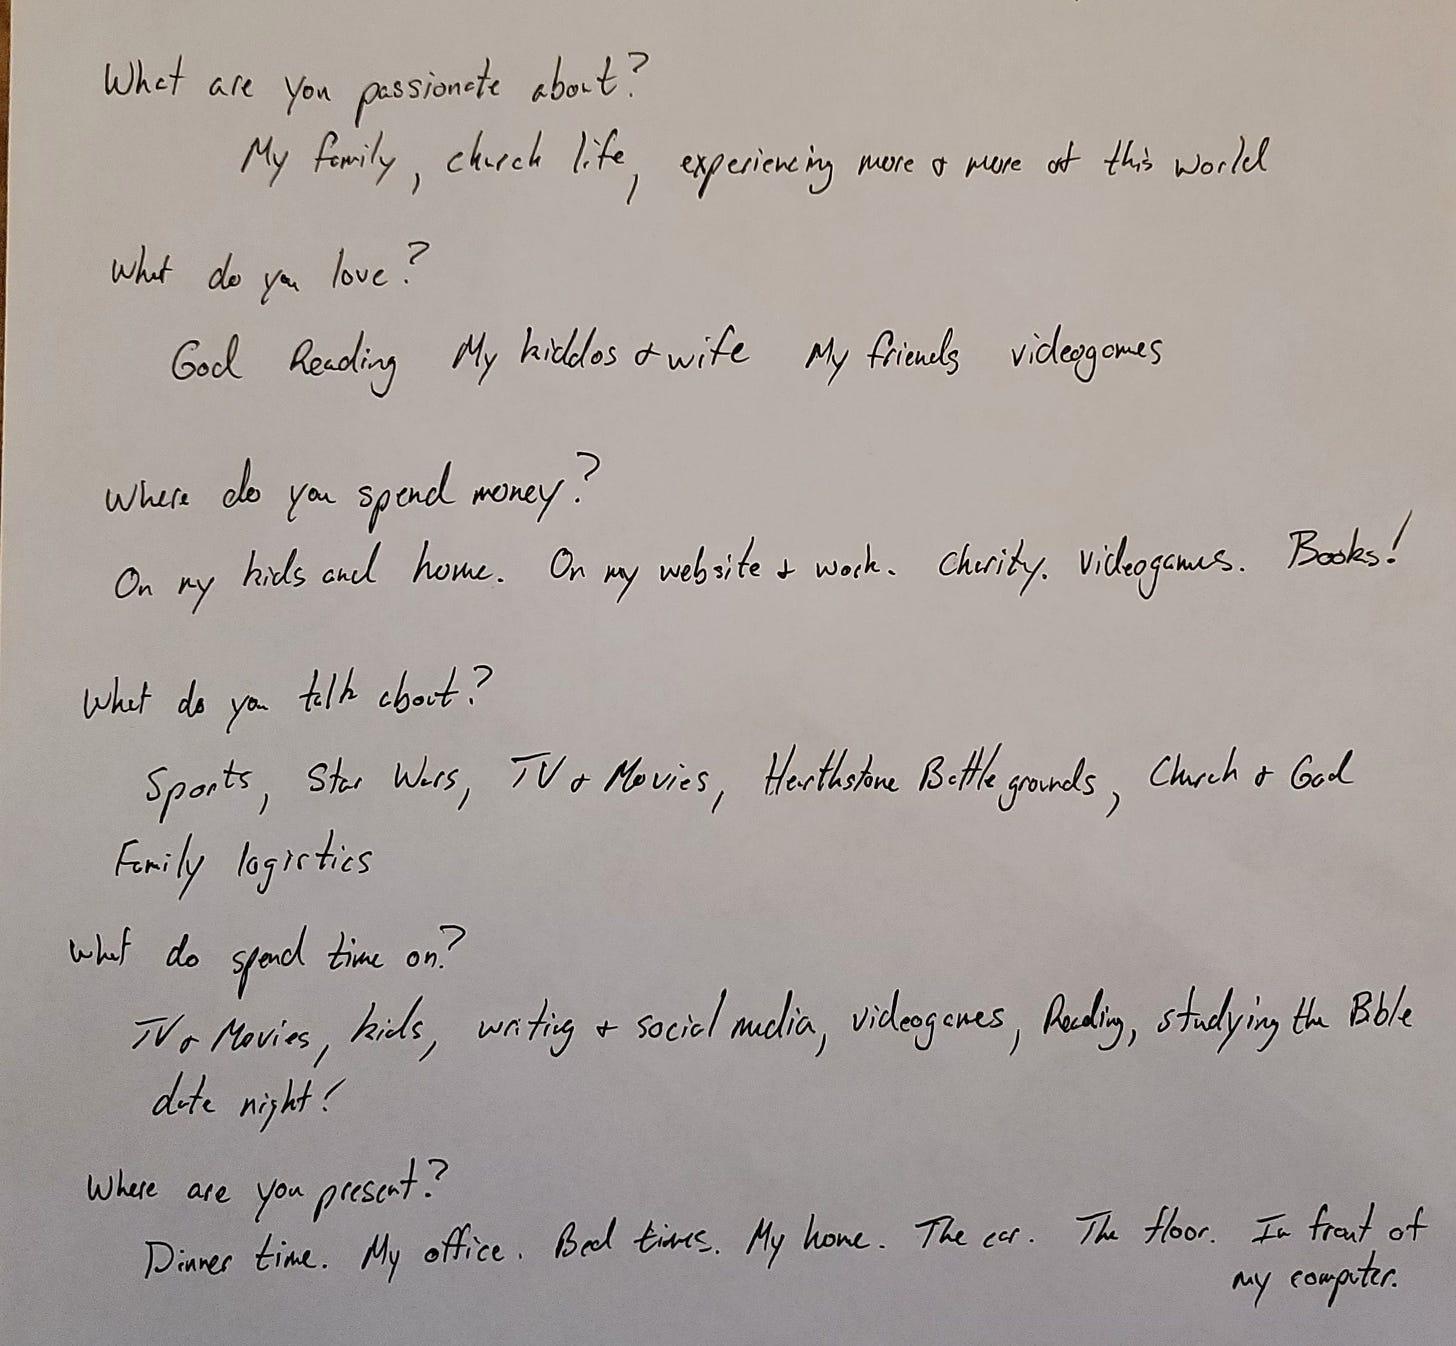 What are you passionate about?
My family, church life, experiencing more & more of this world
What do you love?
God Reading My kiddos & wife My friends videogames
Where do you spend money?
On my kids and home. On my website & work. Charity. Videogames. Books!
What do you talk about?
Sports, Star Wars, TV & Movies, Hearthstone Battlegrounds, Church & God
Family logistics
What do spend time on?
TV & Movies, kids, writing & social media, videogames, Reading, studying the Bible
date night!
Where are you present?
Dinner time. My office. Bed times. My home. The car. The floor. In front of
my computer.